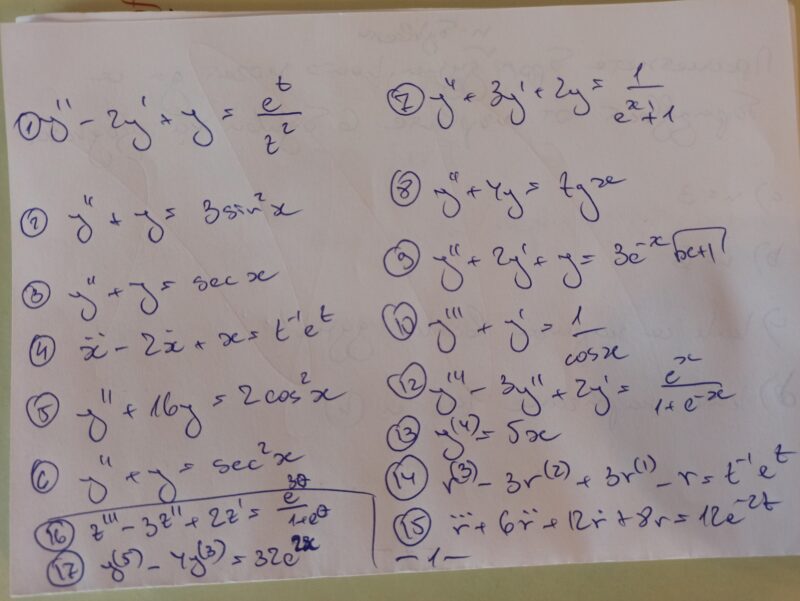 ① y'' - 2y' + y = e^t / z^2
② y'' + y = 3sin^2x
③ y'' + y = sec x
④ ẍ - 2ẋ + x = t^-1 e^t
⑤ y'' + 16y = 2cos^2x
⑥ y'' + y = sec^2x
⑯ z''' - 3z'' + 2z' = e^3t / 1+e^t
⑰ y^(5) - 4y^(3) = 32e^2x
⑦ y'' + 3y' + 2y = 1 / e^x+1
⑧ y'' + 4y = tgx
⑨ y'' + 2y' + y = 3e^-x √x+1
⑩ y''' + y' = 1 / cosx
⑫ y''' - 3y'' + 2y' = e^x / 1+e^-x
⑬ y^(4) = 5x
⑭ r^(3) - 3r^(2) + 3r^(1) - r = t^-1 e^t
⑮ r⃛ + 6r̈ + 12ṙ + 8r = 12e^-2t
-1-